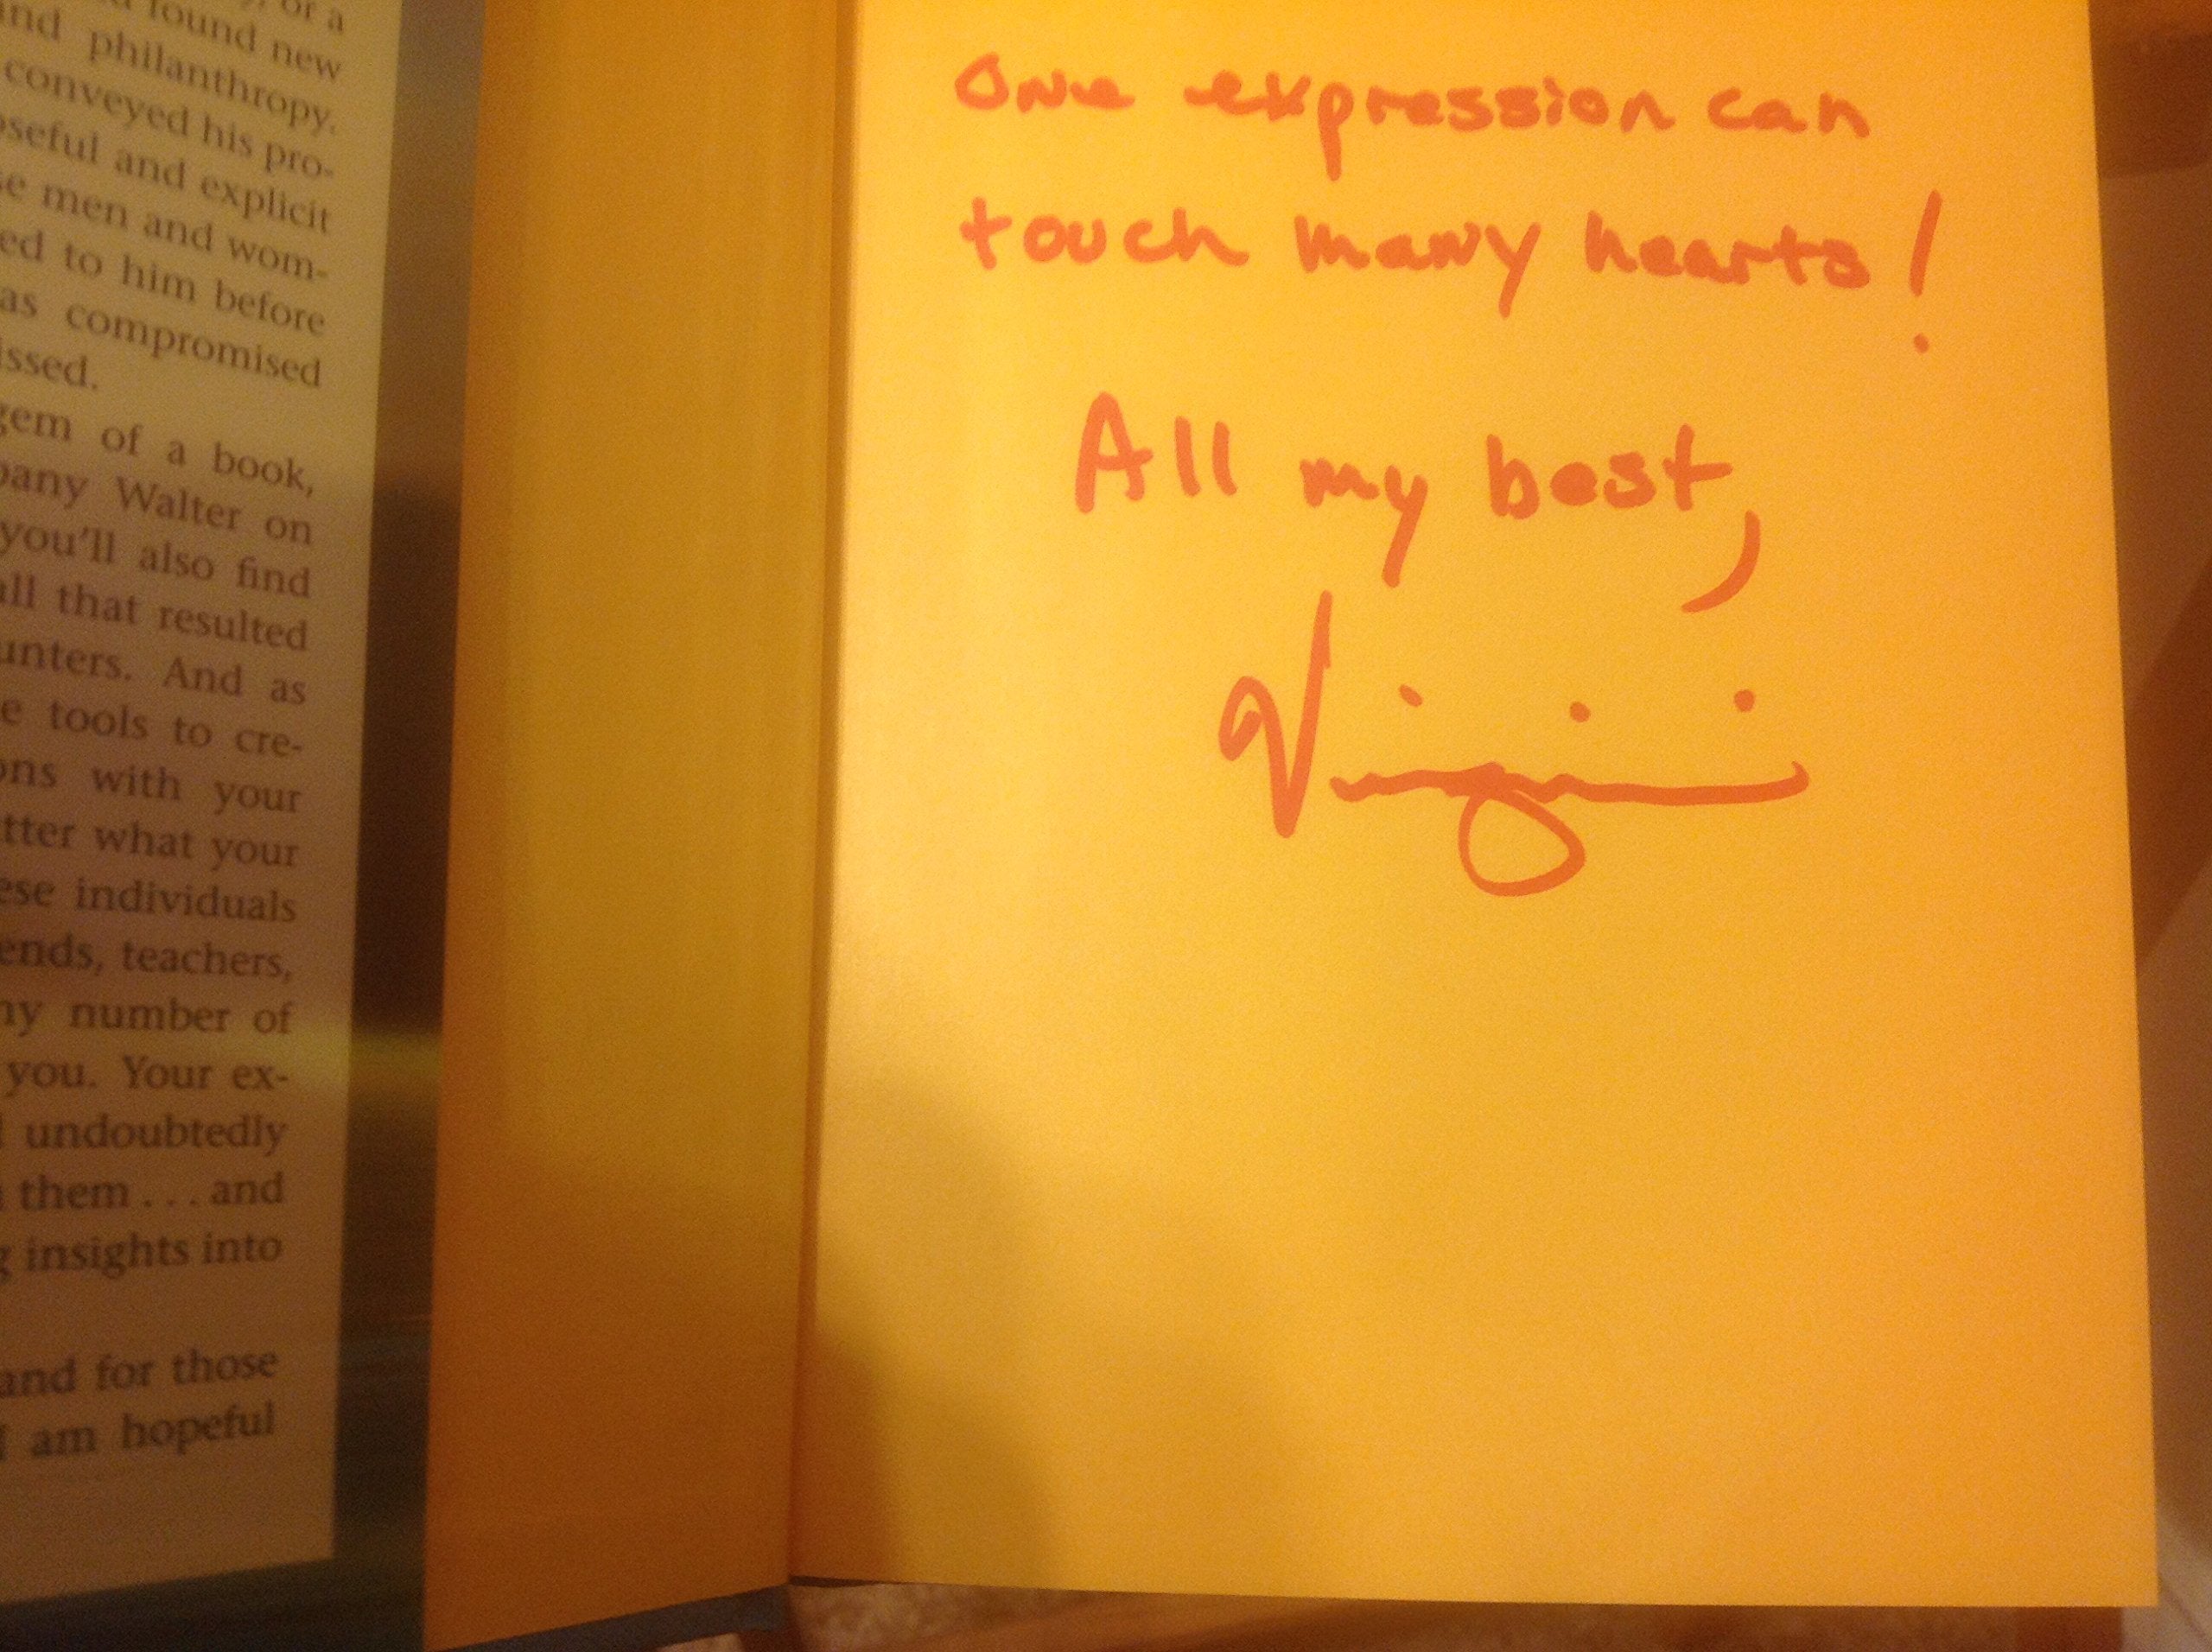 or a
found new
and philanthropy.
conveyed his pro-
seful and explicit
men and wom-
ed to him before
as compromised
issed.
gem of a book,
pany Walter on
you'll also find
all that resulted
unters. And as
e tools to cre-
ons with your
tter what your
ese individuals
ends, teachers,
ny number of
you. Your ex-
undoubtedly
them . . . and
insights into
and for those
I am hopeful
One expression can
touch many hearts!
All my best,
Virginia